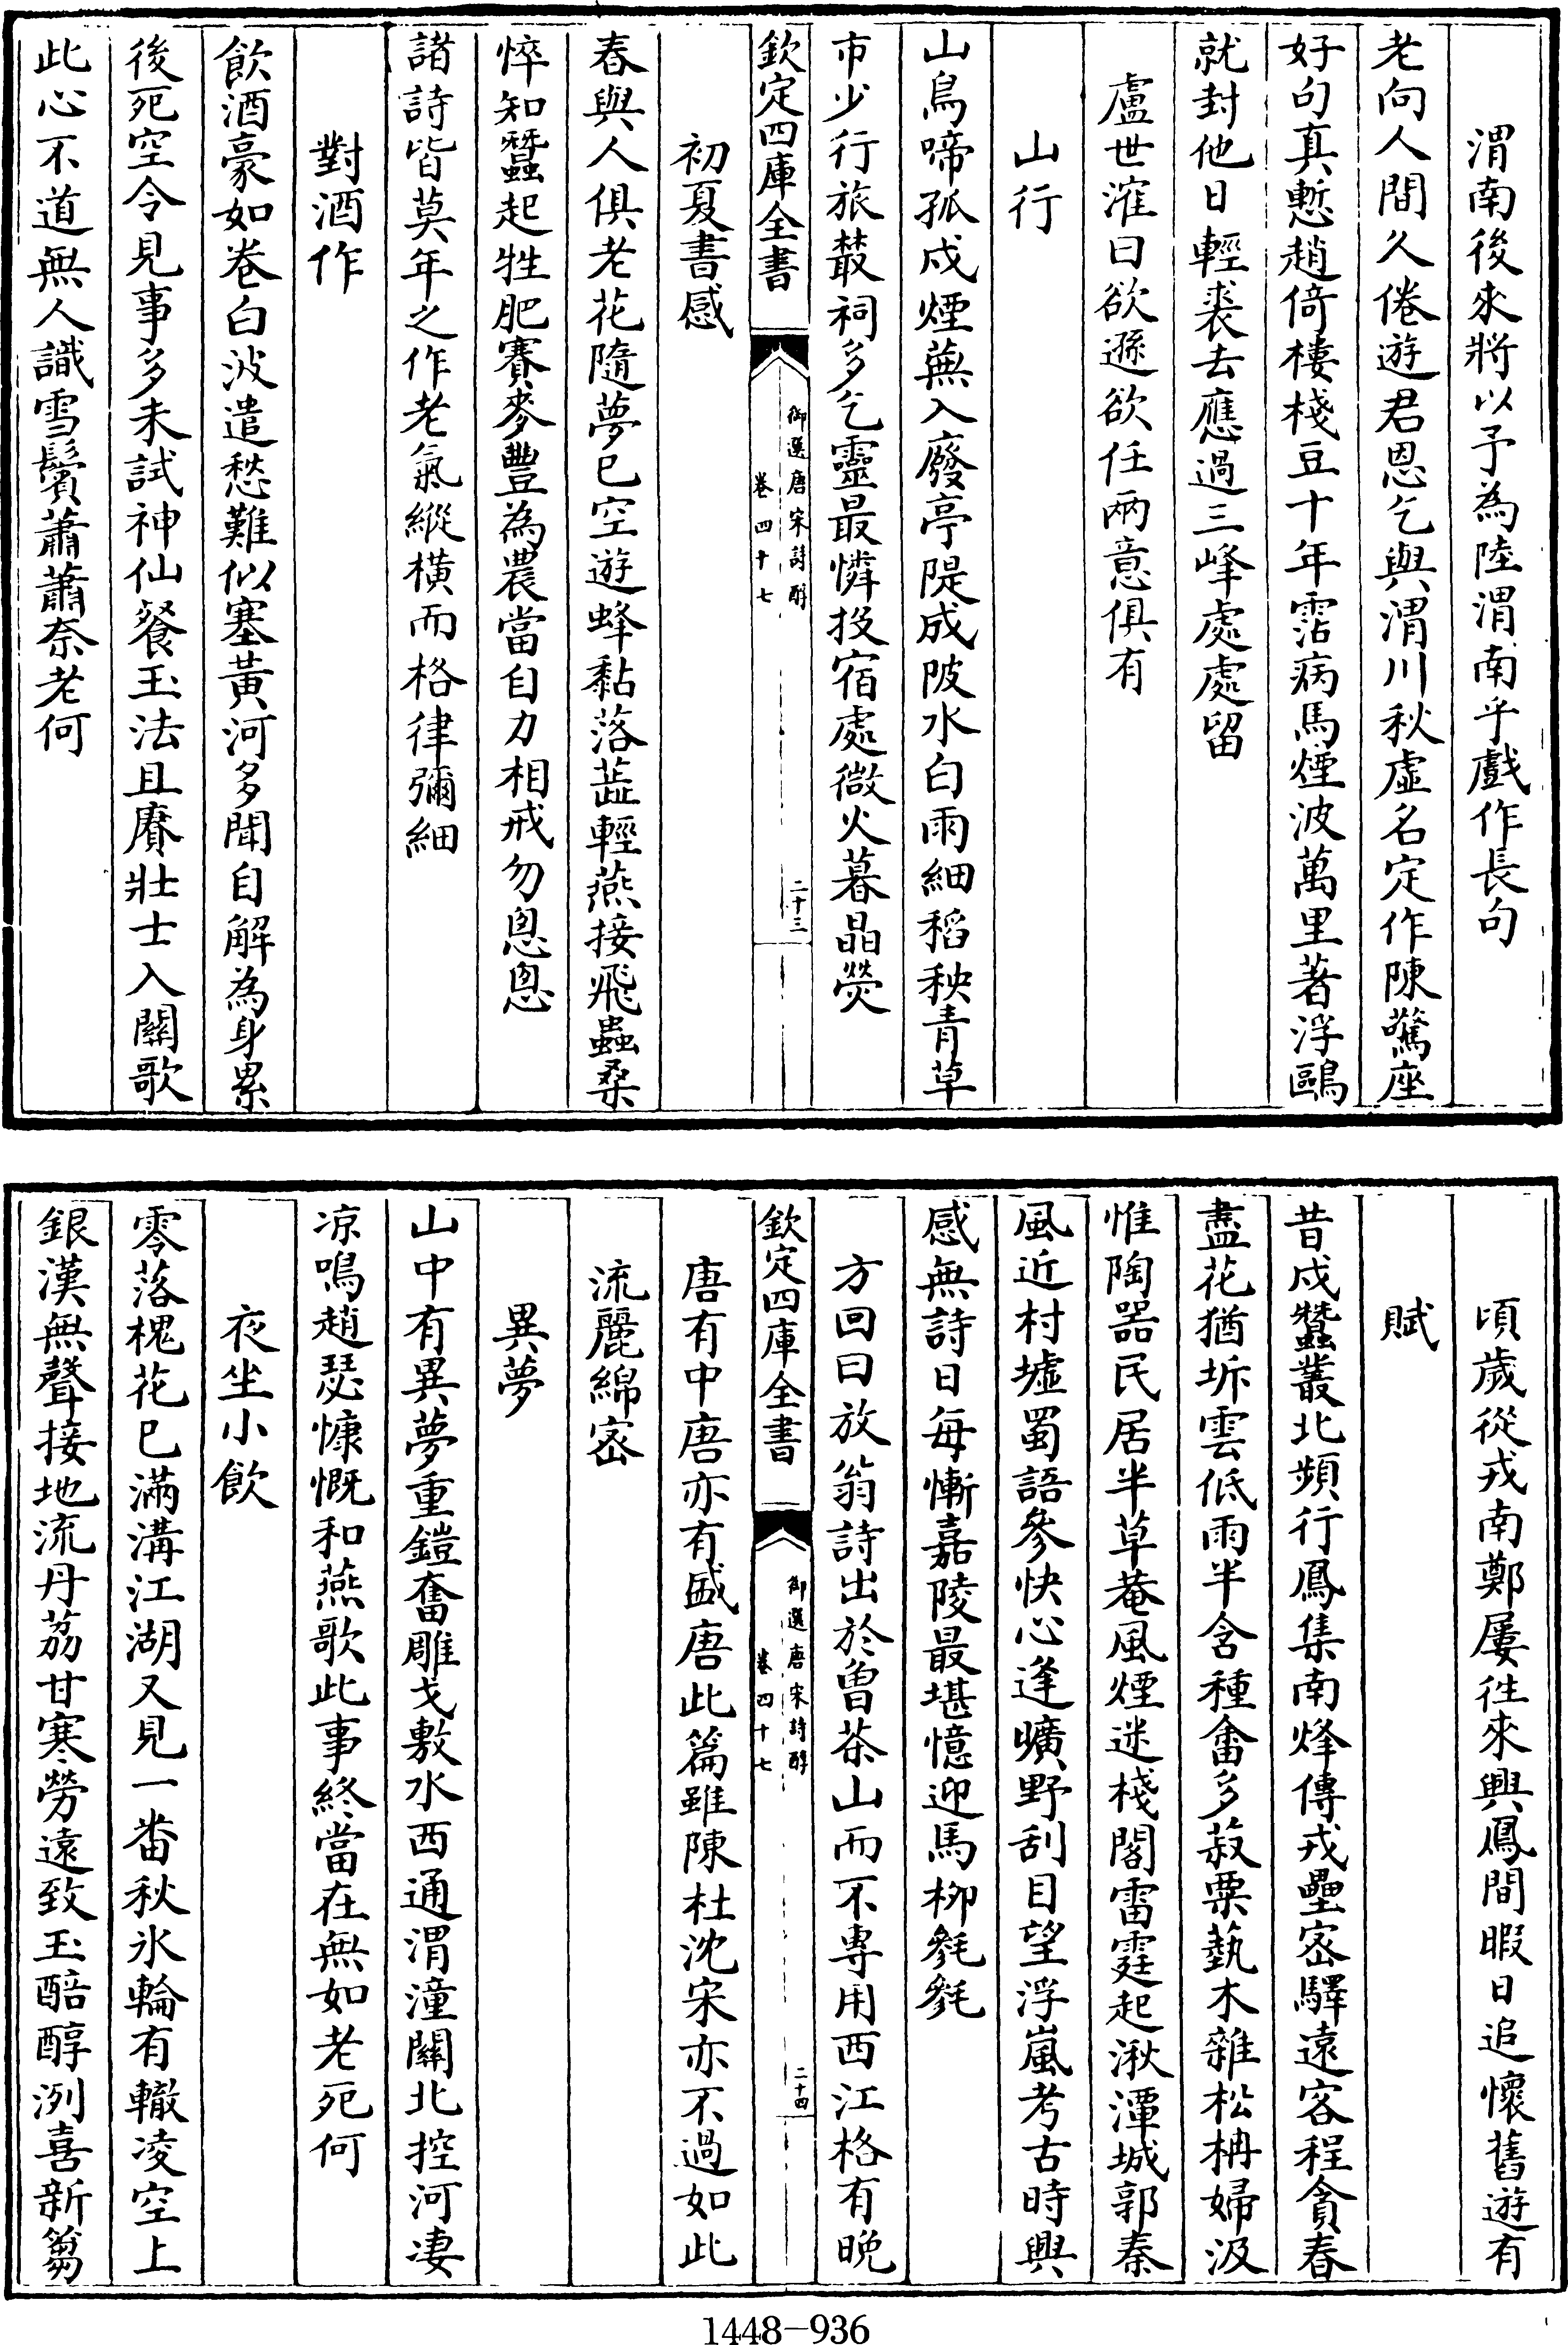 渭南後來將以予為陸渭南乎戲作長句
老向人間久倦遊君恩乞與渭川秋虛名定作陳驚座
好句真慙趙倚樓棧豆十年霑病馬煙波萬里著浮鷗
就封他日輕裘去應過三峰處處留
盧世㴶曰欲遜欲任兩意俱有
山行
山鳥啼孤戍煙蕪入廢亭隄成陂水白雨細稻秧青草
市少行旅叢祠多乞靈最憐投宿處微火暮晶熒
欽定四庫全書
御選唐宋詩醇
卷四十七
二十三
初夏書感
春與人俱老花隨夢已空遊蜂黏落蘂輕燕接飛蟲桑
悴知蠶起牲肥賽麥豐為農當自力相戒勿悤悤
諸詩皆莫年之作老氣縱橫而格律彌細
對酒作
飲酒豪如卷白波遣愁難似塞黃河多聞自解為身累
後死空令見事多未試神仙餐玉法且賡壯士入關歌
此心不道無人識雪鬢蕭蕭奈老何
頃歲從戎南鄭屢往來興鳳間暇日追懷舊遊有
賦
昔戍蠶叢北頻行鳳集南烽傳戎壘宻驛遠客程貪春
盡花猶坼雲低雨半含種畬多菽粟蓺木雜松柟婦汲
惟陶器民居半草菴風煙迷棧閣雷霆起湫潭城郭秦
風近村墟蜀語參快心逢曠野刮目望浮嵐考古時興
感無詩日每慚嘉陵最堪憶迎馬柳毿毿
方回曰放翁詩出於曽茶山而不專用西江格有晩
欽定四庫全書
御選唐宋詩醇
卷四十七
二十四
唐有中唐亦有盛唐此篇雖陳杜沈宋亦不過如此
流麗綿宻
異夢
山中有異夢重鎧奮雕戈敷水西通渭潼關北控河凄
凉鳴趙瑟慷慨和燕歌此事終當在無如老死何
夜坐小飲
零落槐花已滿溝江湖又見一番秋氷輪有轍凌空上
銀漢無聲接地流丹荔甘寒勞遠致玉醅醇洌喜新篘
1448-936